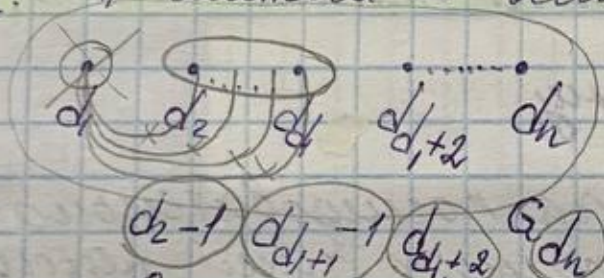 d₁ d₂ d_{d₁} d_{d₁+2} dₙ
d₂-1 d_{d₁+1}-1 d_{d₁+2} G dₙ